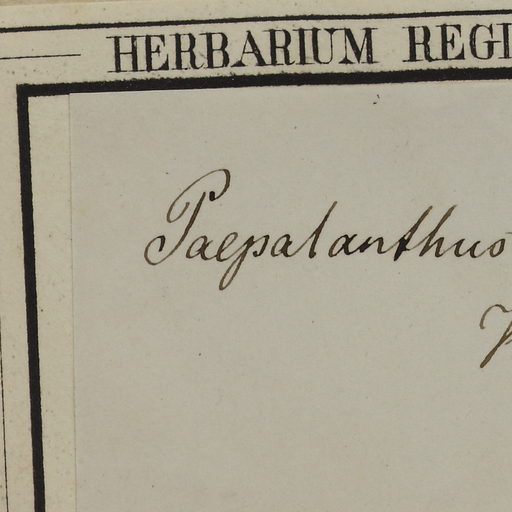 HERBARIUM REGI
Paepalanthus